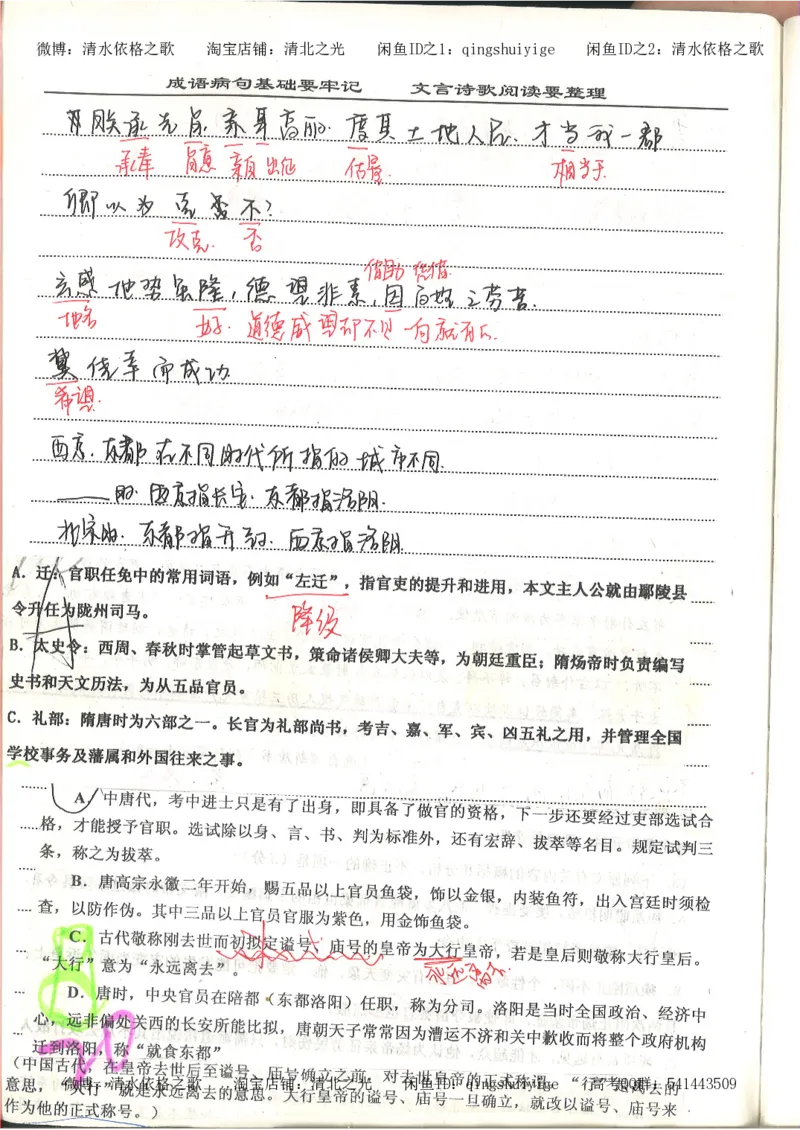 微博：清水依格之歌 淘宝店铺：清北之光 闲鱼ID之1：qingshuiyige 闲鱼ID之2：清水依格之歌
成语病句基础要牢记 文言诗歌阅读要整理
朕承先帝 高丽 度其土地人民 才当我一郡
承奉 亲自出征 估量 相当于
卿以为克否不？
攻克 否
玄感地势虽隆，德望非素，因百姓之劳苦
地名 好 道德威望却不是一向就有的
冀侥幸而成功
希望
西京、东都在不同时代所指的城市不同
时 西京指长安 东都指洛阳
北宋时 东都指开封 西京指洛阳
A．迁：官职任免中的常用词语，例如“左迁”，指官吏的提升和进用，本文主人公就由鄢陵县
令升任为陇州司马。
降级
B．太史令：西周、春秋时掌管起草文书，策命诸侯卿大夫等，为朝廷重臣；隋炀帝时负责编写
史书和天文历法，为从五品官员。
C．礼部：隋唐时为六部之一。长官为礼部尚书，考吉、嘉、军、宾、凶五礼之用，并管理全国
学校事务及藩属和外国往来之事。
A．中唐代，考中进士只是有了出身，即具备了做官的资格，下一步还要经过吏部选试合
格，才能授予官职。选试除以身、言、书、判为标准外，还有宏辞、拔萃等名目。规定试判三
条，称之为拔萃。
B．唐高宗永徽二年开始，赐五品以上官员鱼袋，饰以金银，内装鱼符，出入宫廷时须检
查，以防作伪。其中三品以上官员官服为紫色，用金饰鱼袋。
C．古代敬称刚去世而初拟定谥号、庙号的皇帝为大行皇帝，若是皇后则敬称大行皇后。
“大行”意为“永远离去”。
永远离去
D．唐时，中央官员在陪都（东都洛阳）任职，称为分司，洛阳是当时全国政治、经济中
心，远非偏处关西的长安所能比拟，唐朝天子常常因为漕运不济和关中歉收而将整个政府机构
迁到洛阳，称“就食东都”
（中国古代，在皇帝去世后至谥号、庙号确立之前，对去世皇帝的正式称谓。“行”是离去的
微博：清水依格之歌 淘宝店铺：清北之光 闲鱼ID：qingshuiyige 高考QQ群：541443509
意思，“大行”就是永远离去的意思。大行皇帝的谥号、庙号一旦确立，就改以谥号、庙号来
作为他的正式称号。）